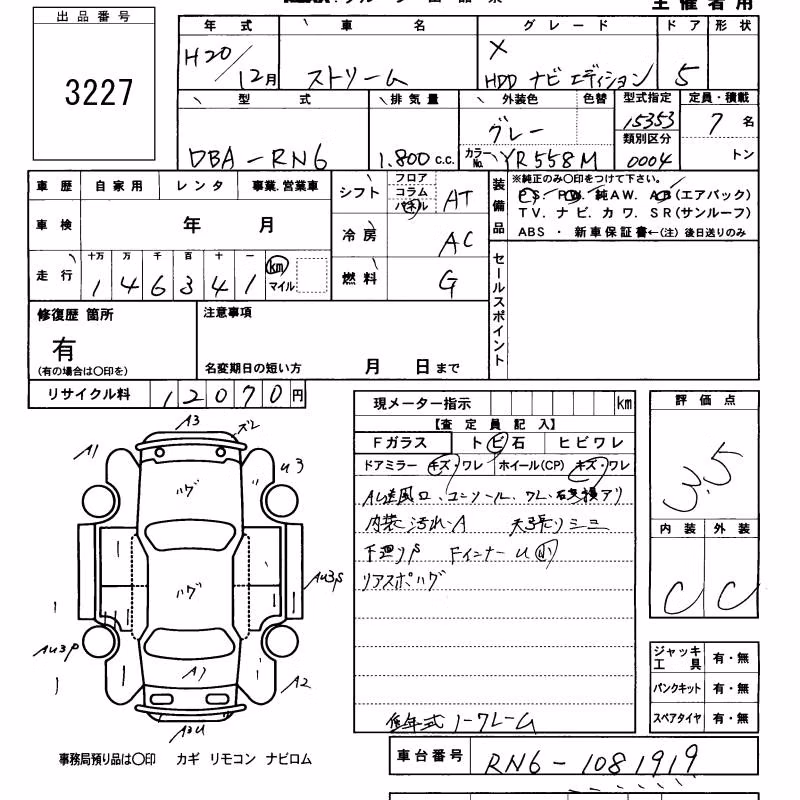 主催者用
出品番号
3227
年式 車名 グレード ドア 形状
H20/12月 ストリーム X HDD ナビ エディション 5
型式 排気量 外装色 色替 型式指定 定員・積載
DBA-RN6 1.800c.c. グレー カラーNo. YR558M 15353 7名
類別区分
0004 トン
車歴 自家用 レンタ 事業.営業車
車検 年 月
走行 十万 万 千 百 十 一
1 4 6 3 4 1 km マイル
シフト フロア コラム パネル AT
冷房 AC
燃料 G
装備品 ※純正のみ〇印をつけて下さい。
PS. PW. 純AW. AB(エアバック)
TV. ナビ. カワ. SR(サンルーフ)
ABS ・ 新車保証書←(注) 後日送りのみ
セールスポイント
修復歴 箇所
有
(有の場合は〇印を)
注意事項
名変期日の短い方 月 日まで
リサイクル料 12070円
現メーター指示 km
【査定員記入】
Fガラス トビ石 ヒビワレ
ドアミラー キズ・ワレ ホイール(CP) キズ・ワレ
内装汚れA
下廻りP Fインナー U 小
リアスポハゲ
ノークレーム
評価点
3.5
内装 外装
C C
A3
ズレ
A1
U3
ハゲ
AU3P
ハゲ
AU3P
A1
A2
A3U
ジャッキ工具 有・無
パンクキット 有・無
スペアタイヤ 有・無
事務局預り品は〇印 カギ リモコン ナビロム
車台番号 RN6-1081919